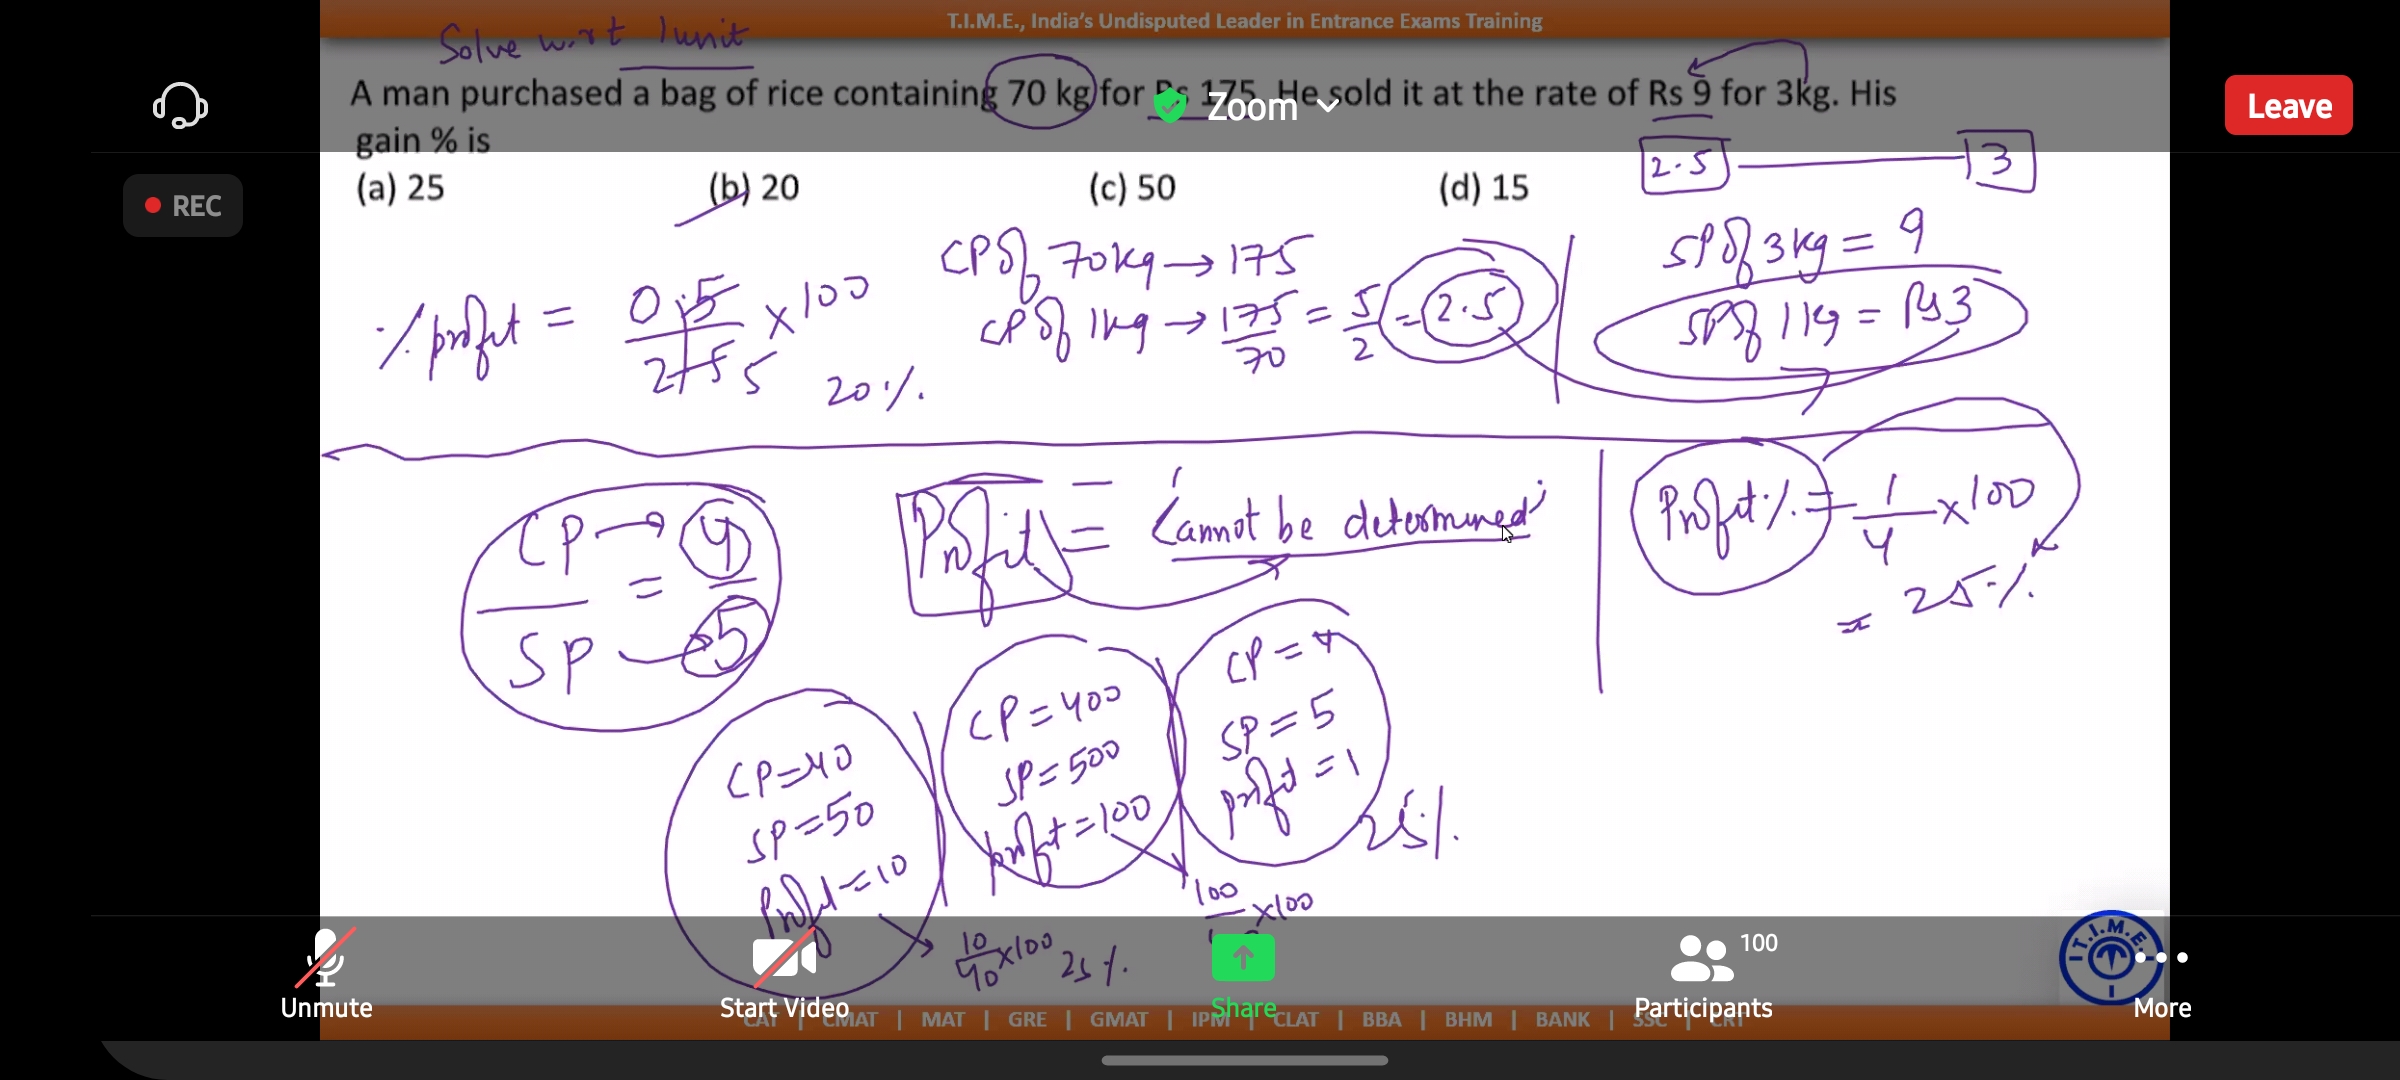 T.I.M.E., India's Undisputed Leader in Entrance Exams Training
Solve w.r.t 1 unit
A man purchased a bag of rice containing 70 kg for Rs 175. He sold it at the rate of Rs 9 for 3kg. His
gain % is
Zoom
Leave
REC
(a) 25 (b) 20 (c) 50 (d) 15
2.5 3
CP of 70kg → 175
CP of 1kg → 175/70 = 5/2 = 2.5
SP of 3kg = 9
SP of 1kg = Rs 3
% profit = 0.5/2.5 x 100
5
20%
CP/SP = 4/5
Profit = 'Cannot be determined'
Profit % = 1/4 x 100
= 25%
CP = 40
SP = 50
Profit = 10
10/40 x 100 25%
CP = 400
SP = 500
profit = 100
100 x 100
CP = 4
SP = 5
profit = 1
25%
T.I.M.E.
100
Unmute
Start Video
Share
Participants
More
CAT | CMAT | MAT | GRE | GMAT | IPM | CLAT | BBA | BHM | BANK | SSC | CRT